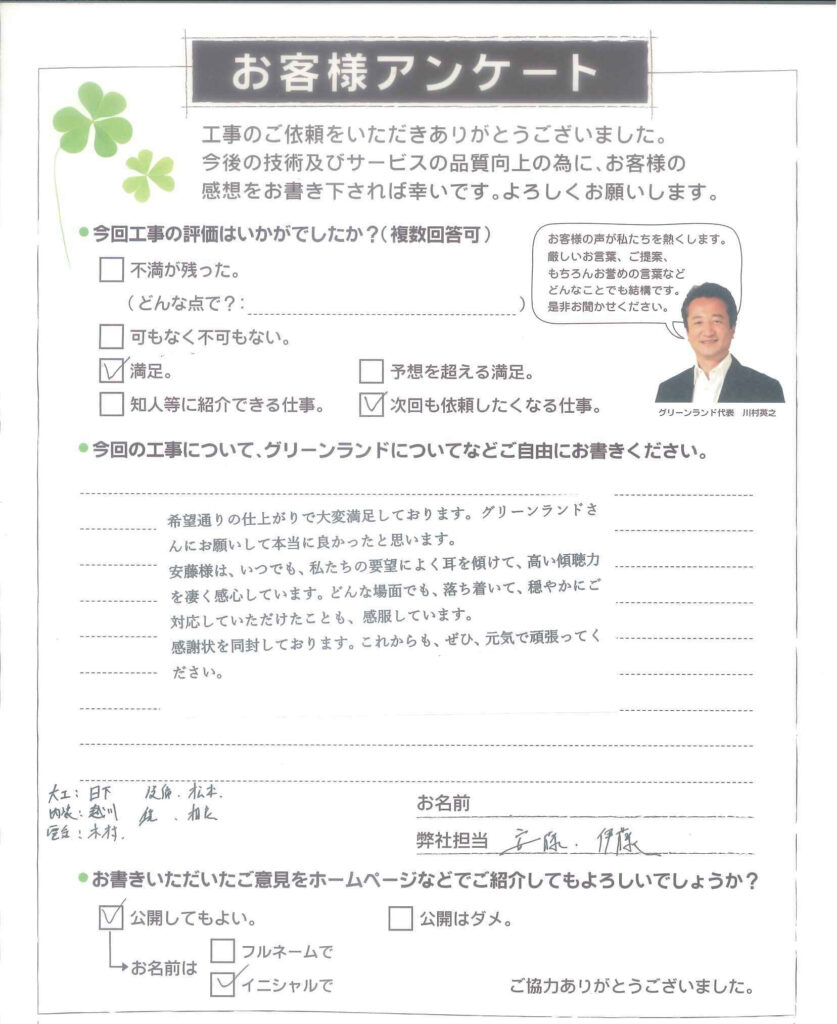 お客様アンケート
工事のご依頼をいただきありがとうございました。
今後の技術及びサービスの品質向上の為に、お客様の
感想をお書き下されば幸いです。よろしくお願いします。
今回工事の評価はいかがでしたか?(複数回答可)
お客様の声が私たちを熱くします。
厳しいお言葉、ご提案、
もちろんお誉めの言葉など
どんなことでも結構です。
是非お聞かせください。
不満が残った。
(どんな点で?: )
可もなく不可もない。
満足。
予想を超える満足。
知人等に紹介できる仕事。
次回も依頼したくなる仕事。
グリーンランド代表 川村英之
今回の工事について、グリーンランドについてなどご自由にお書きください。
希望通りの仕上がりで大変満足しております。グリーンランドさ
んにお願いして本当に良かったと思います。
安藤様は、いつでも、私たちの要望によく耳を傾けて、高い傾聴力
を凄く感心しています。どんな場面でも、落ち着いて、穏やかにご
対応していただけたことも、感服しています。
感謝状を同封しております。これからも、ぜひ、元気で頑張ってく
ださい。
大工:日下 松本.
内装:越川
木村.
お名前
弊社担当 安藤. 伊藤
お書きいただいたご意見をホームページなどでご紹介してもよろしいでしょうか?
公開してもよい。
公開はダメ。
お名前は
フルネームで
イニシャルで
ご協力ありがとうございました。